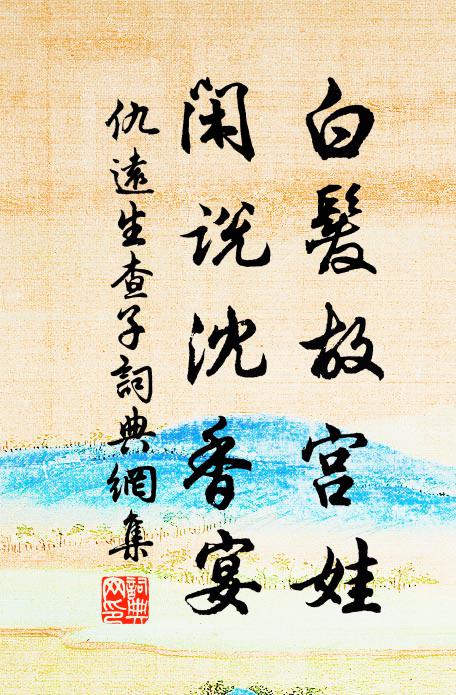 白髮故宮娃
閑說沈香宴
仇遠生查子詞典網集
詞典